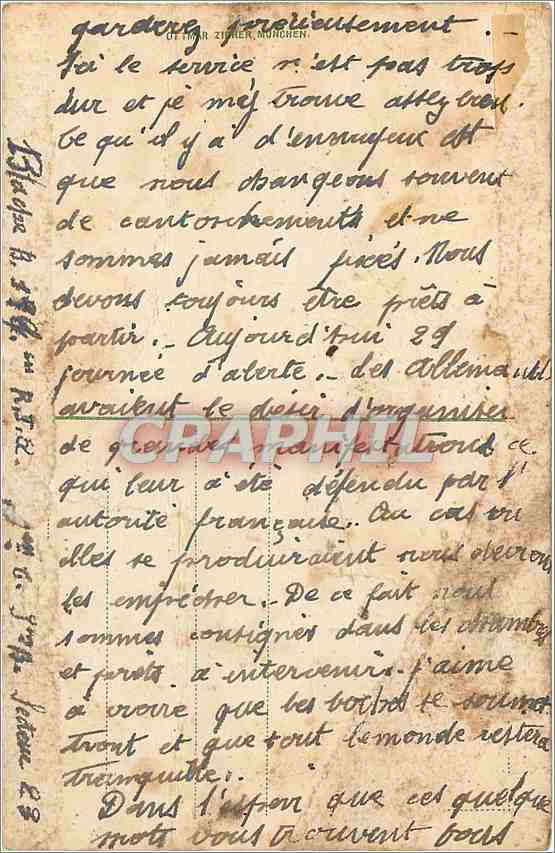 garderez précieusement.
OTTMAR ZIEHER, MÜNCHEN.
Ici le service n'est pas trop
dur et je m'ej trouve assez bien.
Ce qu'il y a d'ennuyeux est
que nous changeons souvent
de cantonnements et ne
sommes jamais fixés. Nous
devons toujours être prêts à
partir. _ Aujourd'hui 29
journée d'alerte. _ Les Allemands
avaient le désir d'organiser
de grandes manifestations ce
qui leur a été défendu par l'
autorité française. Au cas ou
elles se produiraient nous devrons
les empêcher. _ De ce fait nous
sommes consignés dans les chambres
et prêts à intervenir. J'aime
à croire que les boches se soumet
tront et que tout le monde restera
tranquille.
Dans l'espoir que ces quelque
mots vous trouvent tous
CPARHIL
Secteur 23